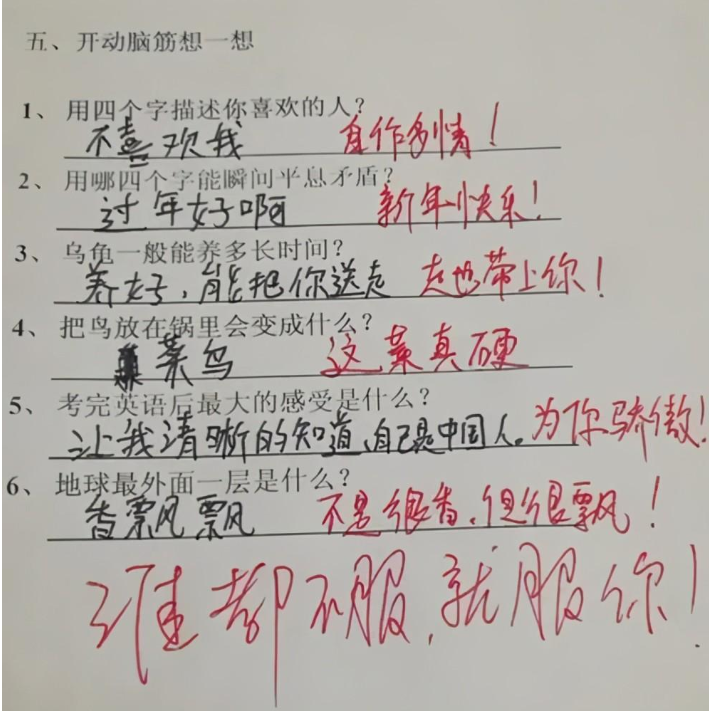 五、开动脑筋想一想
1、用四个字描述你喜欢的人？
不喜欢我 自作多情！
2、用哪四个字能瞬间平息矛盾？
过年好啊 新年快乐！
3、乌龟一般能养多长时间？
养好，能把你送走 走也带上你！
4、把鸟放在锅里会变成什么？
菜鸟 这菜真硬
5、考完英语后最大的感受是什么？
让我清晰的知道，自己是中国人。为你骄傲！
6、地球最外面一层是什么？
香飘飘 不是很香，但很飘！
谁都不服，就服你！